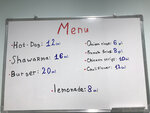 Menu
- Hot-Dog: 12₪
- Shawarma: 16₪
- Burger: 20₪
- Onion rings: 6₪
- French fries: 8₪
- Chicken strips: 10₪
- Cauliflower: 12₪
- lemonade: 8₪